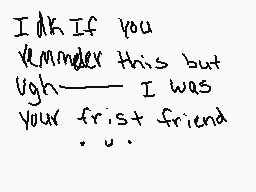 I dk If you
remmder this but
ugh—— I was
your frist friend
. u .